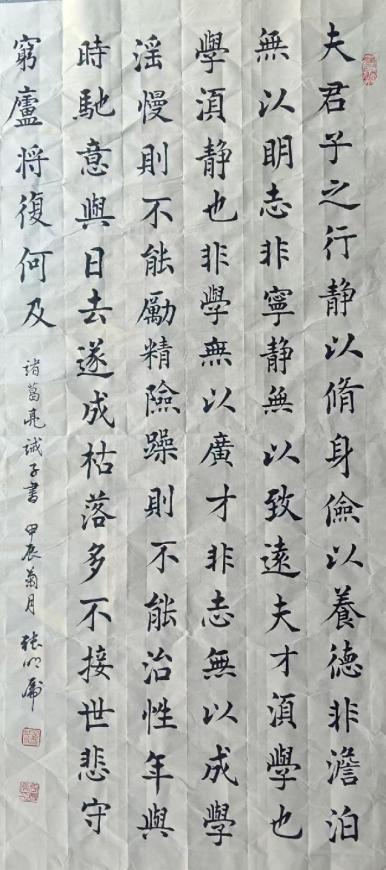 夫君子之行静以脩身儉以養德非澹泊
無以明志非寧静無以致遠夫才湏學也
學湏静也非學無以廣才非志無以成學
滛慢則不能勵精險躁則不能治性年與
時馳意與日去遂成枯落多不接世悲守
窮廬将復何及
諸葛亮誡子書 甲辰菊月